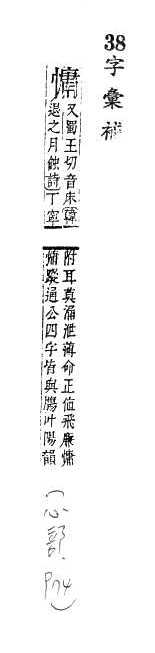 38字彙補
慵
又蜀王切音床韓
退之月蝕詩丁寧
附耳莫漏泄薄命正值飛廉慵
慵蹤通公四字皆與叶陽韻
(心部, P74)